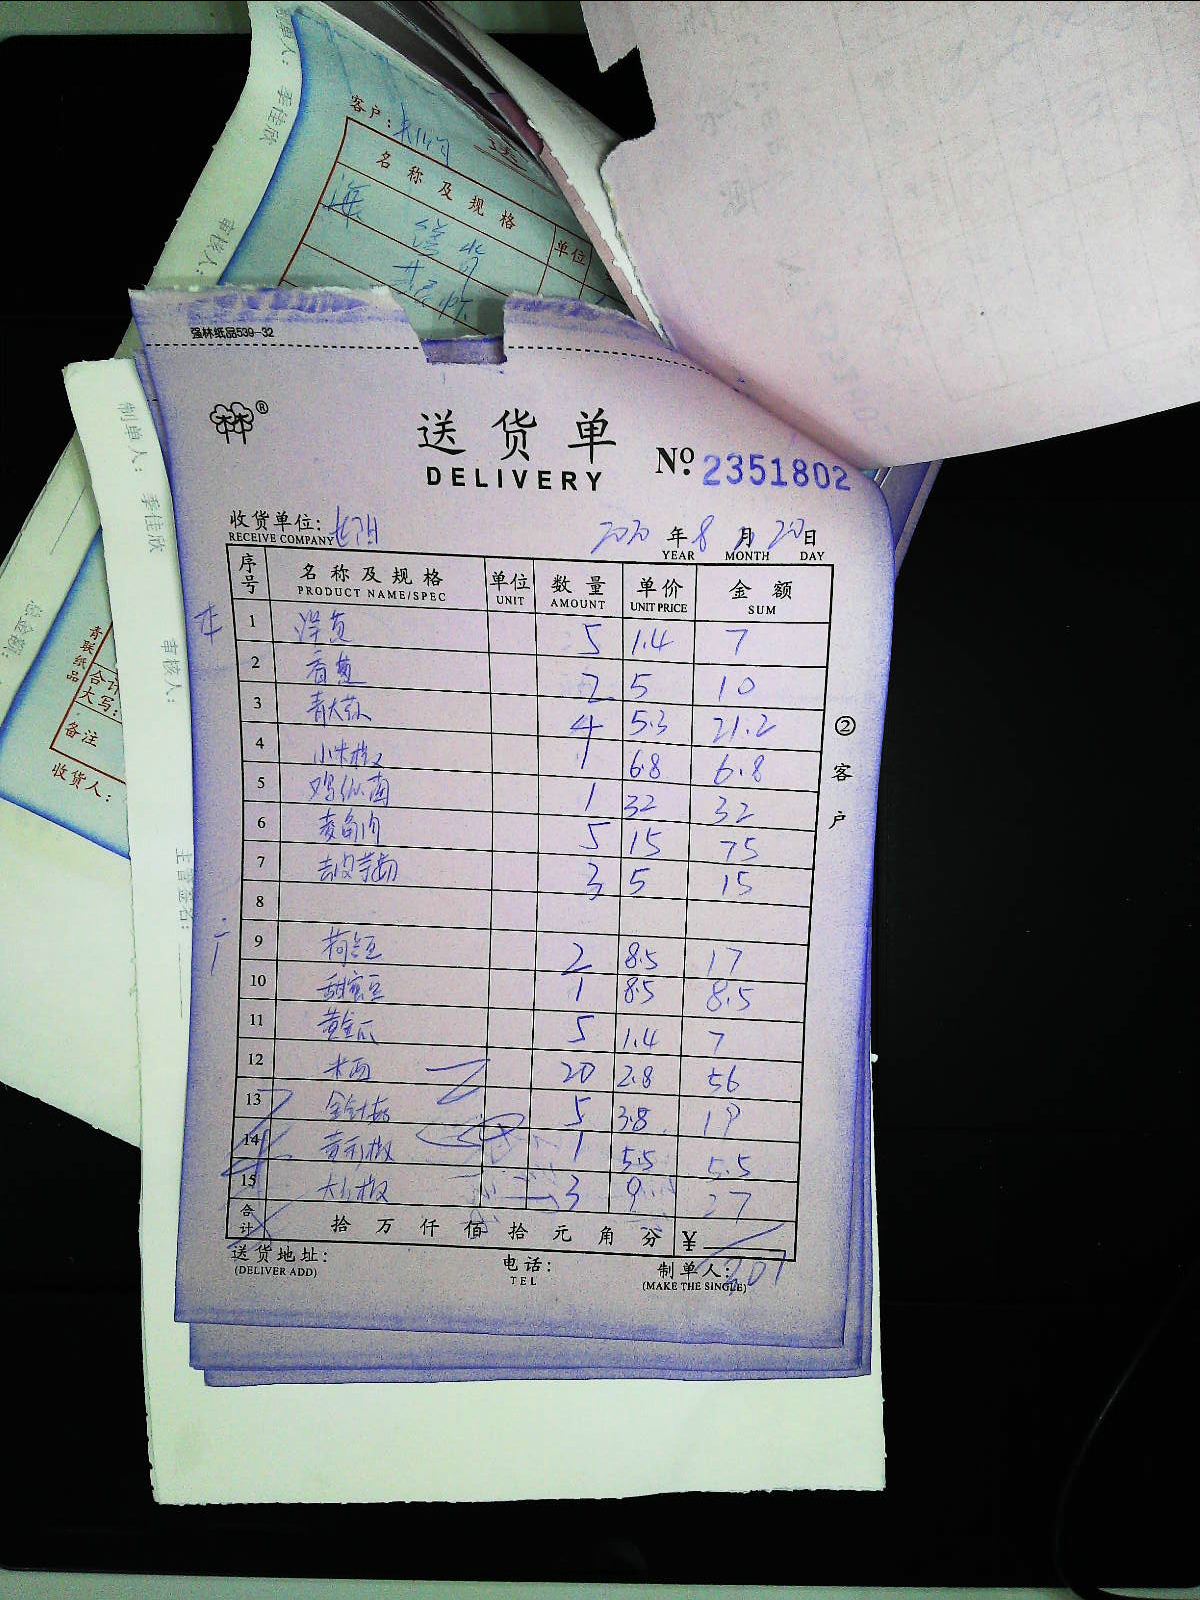 制单人: 季佳欣
审核人:
客户:
名称及规格 单位
海
强林纸品539-32
林林®
送货单
DELIVERY
No. 2351802
收货单位:
RECEIVE COMPANY
2020 年 8 月 20 日
YEAR MONTH DAY
序号 名称及规格 单位 数量 单价 金额
PRODUCT NAME/SPEC UNIT AMOUNT UNIT PRICE SUM
1 洋芋 5 1.4 7
2 香葱 2 5 10
3 青大蒜 4 5.3 21.2
4 小米椒 1 6.8 6.8
5 鸡纵菌 1 32 32
6 菱角肉 5 15 75
7 去皮芋艿 3 5 15
8
9 荷兰豆 2 8.5 17
10 甜蜜豆 1 8.5 8.5
11 黄金瓜 5 1.4 7
12 木西 20 2.8 56
13 金针菇 5 3.8 19
14 黄彩椒 1 5.5 5.5
15 大红椒 3 9 27
合计 拾 万 仟 佰 拾 元 角 分 ¥
送货地址:
(DELIVER ADD)
电话:
TEL
制单人:
(MAKE THE SINGLE)
②客户
制单人: 季佳欣
审核人:
主管签名:
总金额:
青联纸品
合计
大写:
备注
收货人: